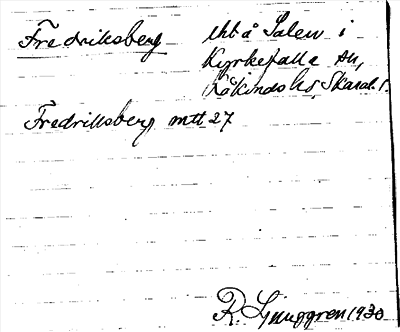 Fredriksberg
lht å Salen i
Kyrkefalla sn,
Kåkinds hd, Skarab. l.
Fredriksberg mtl 27
R. Ljunggren 1930